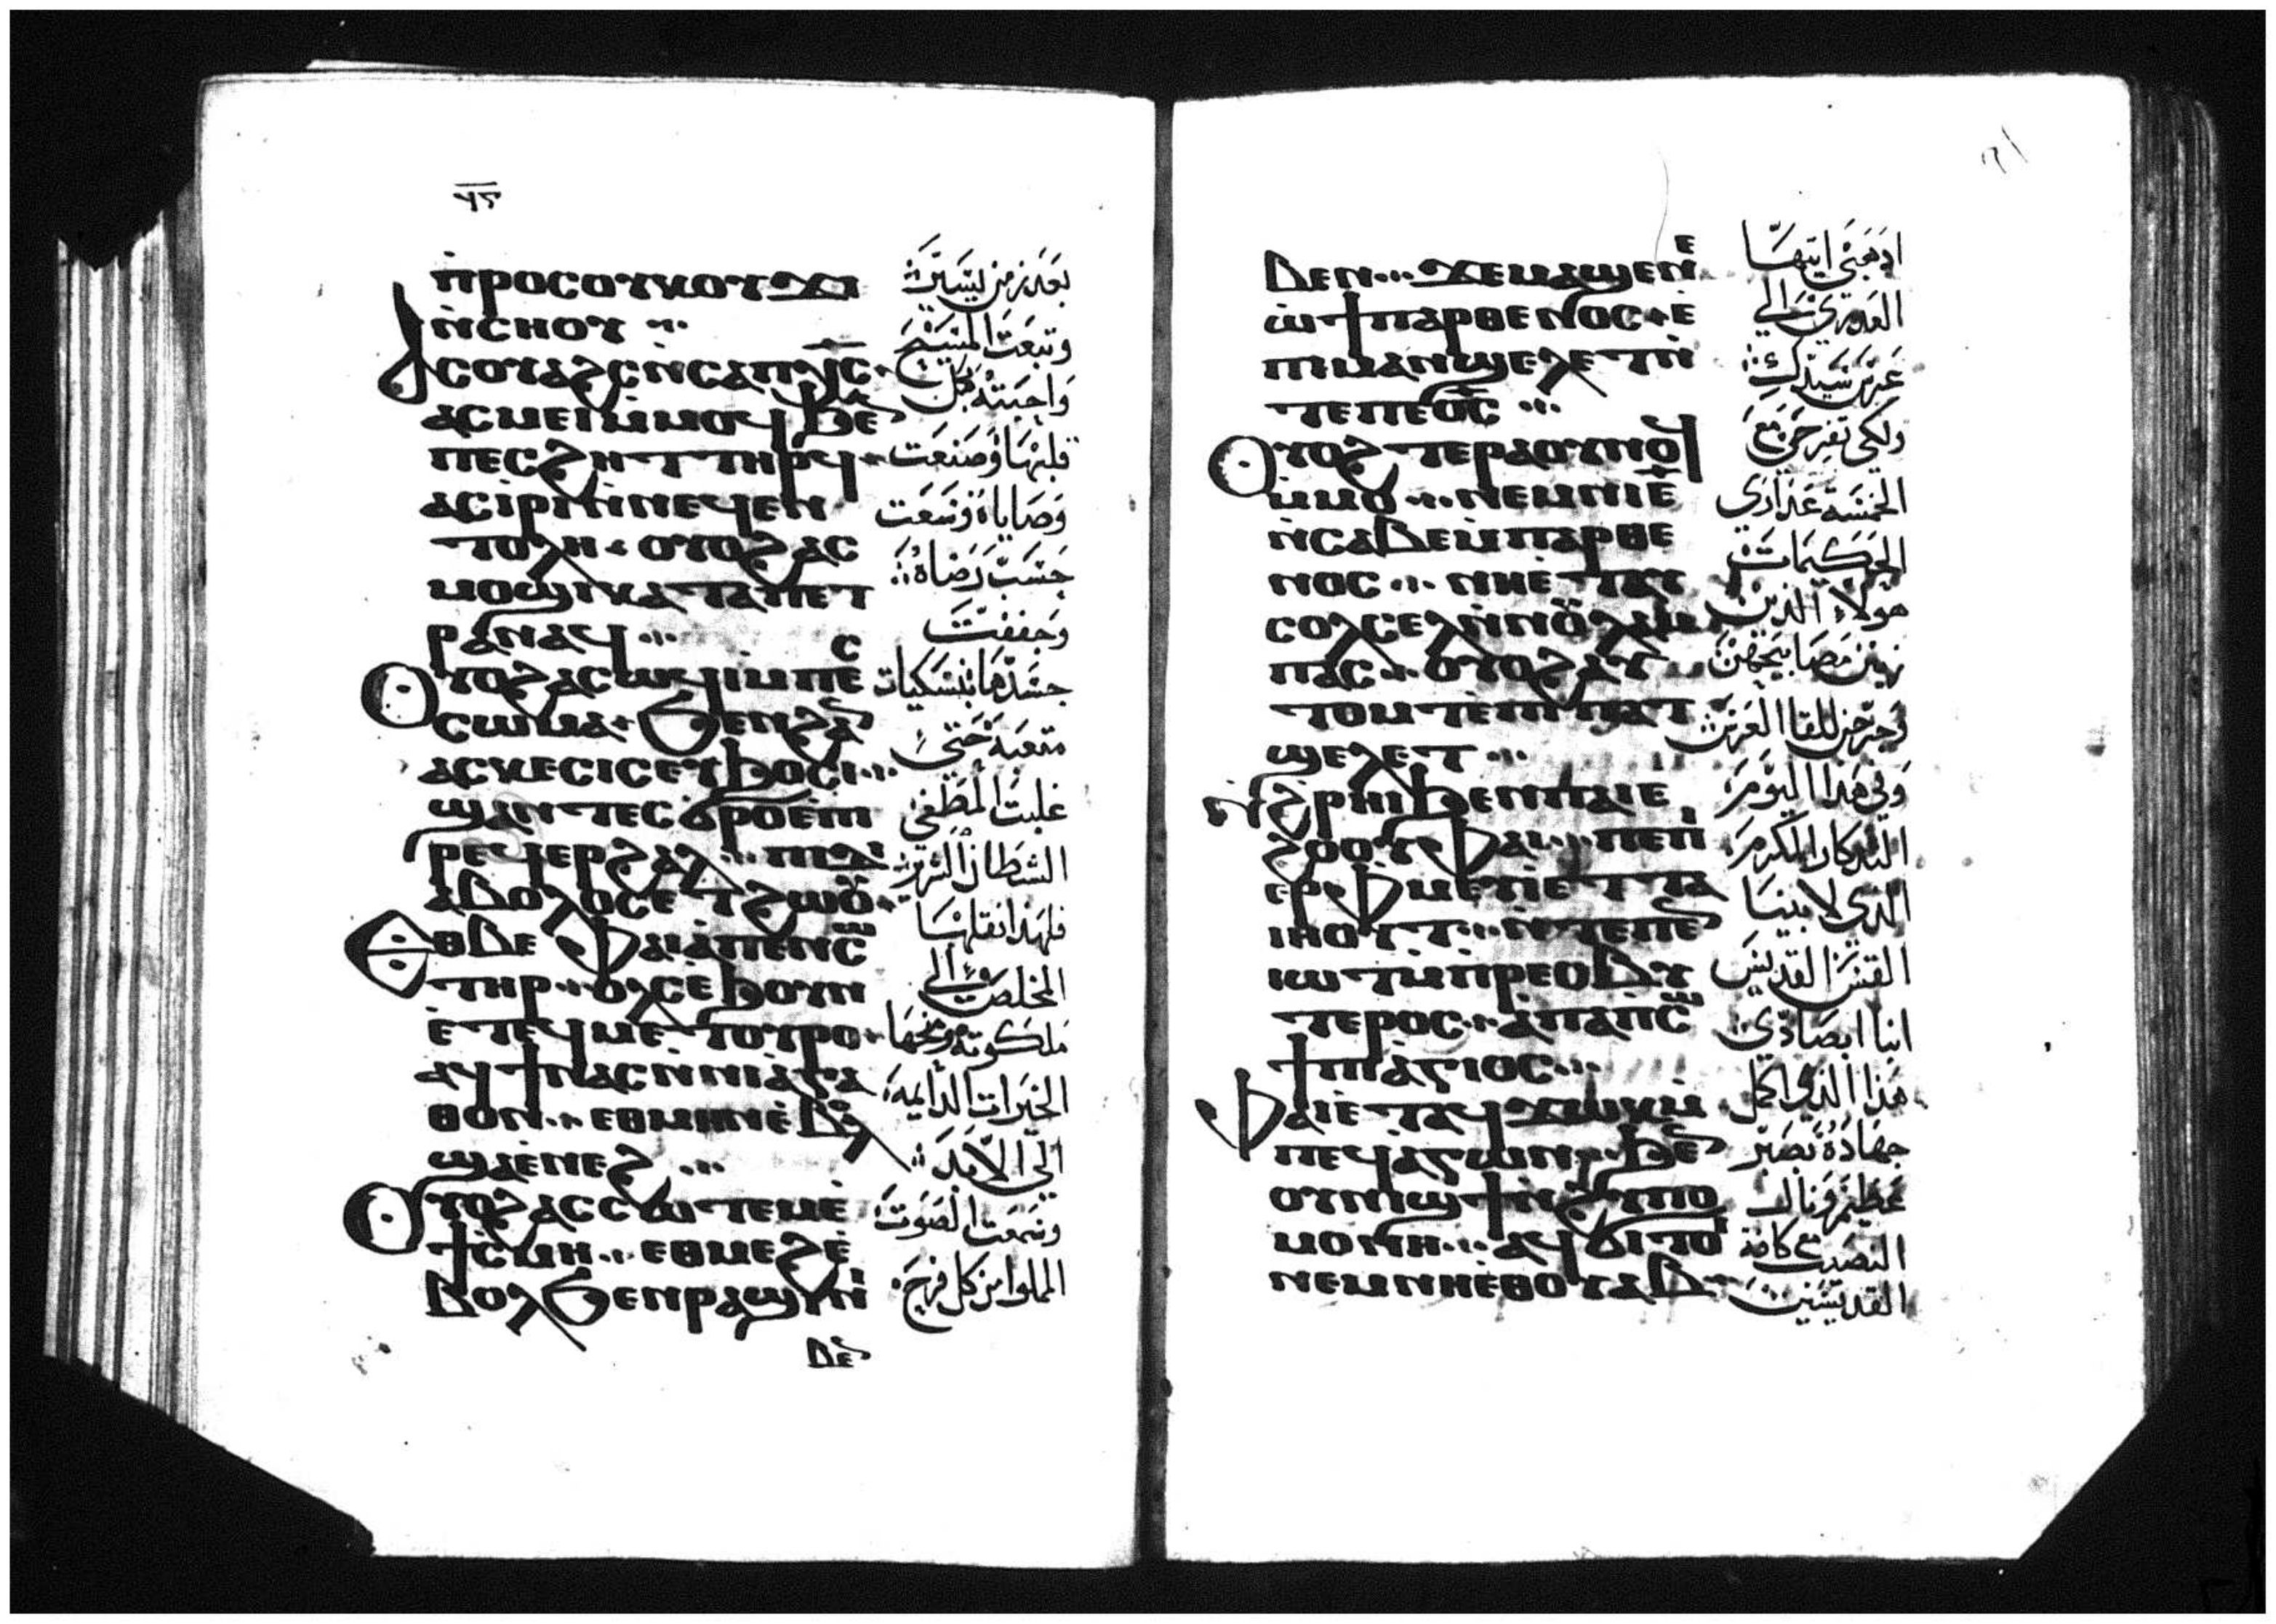 ⲡ̀ⲣⲟⲥⲟⲩⲕⲟⲩϫⲓ
ⲛ̀ⲥⲏⲟⲩ
ⲁⲥⲟⲩⲁϩⲥ ⲛ̀ⲥⲁ ⲡⲭ̅ⲥ̅
ⲁⲥⲙⲉⲓ ⲙ̀ⲙⲟϥ ϧⲉⲛ
ⲡⲉⲥϩⲏⲧ ⲧⲏⲣϥ
ⲁⲥⲓⲣⲓ ⲛ̀ⲛⲉϥⲉⲛ
ⲧⲟⲗⲏ ⲟⲩⲟϩ ⲁⲥ
ⲙⲟϣⲓ ⲕⲁⲧⲁ ⲡⲉⲧ
ⲣⲁⲛⲁϥ
ⲟⲩⲟϩ ⲁⲥϣⲱϥⲓ ⲙ̀ⲡⲉⲥ
ⲥⲱⲙⲁ ϧⲉⲛ ϩⲁⲛ
ⲁⲥⲕⲉⲥⲓⲥ ⲉⲩϧⲟⲥⲓ
ϣⲁⲛⲧⲉⲥϭⲣⲟ ⲉ̀ⲡⲓ
ⲣⲉϥⲉⲣϩⲁⲗ ⲡⲓⲇⲓ
ⲁⲃⲟⲗⲟⲥ ⲉⲧϩⲱⲟⲩ
ⲉⲑⲃⲉ ⲫⲁⲓ ⲁ̀ ⲡⲉⲛⲥⲱ
ⲧⲏⲣ ⲟⲗⲥ ⲉ̀ϧⲟⲩⲛ
ⲉ̀ⲧⲉϥⲙⲉⲧⲟⲩⲣⲟ
ⲁϥϯ ⲛⲁⲥ ⲛ̀ⲛⲓⲁ̀ⲅⲁ
ⲑⲟⲛ ⲉⲑⲙⲏⲛ ⲉ̀ⲃⲟⲗ
ϣⲁ ⲉ̀ⲛⲉϩ
ⲟⲩⲟϩ ⲁⲥⲥⲱⲧⲉⲙ ⲉ̀
ϯⲥⲙⲏ ⲉⲑⲙⲉϩ ⲉ̀
ⲃⲟⲗ ϧⲉⲛ ⲣⲁϣⲓ ⲛⲓ
ⲃⲉⲛ
بعد زمن يسير
وتبعت المسيح
واحبته بكل
قلبها وصنعت
وصاياه وسعت
حسب رضاه
وجففت
جسدها بنسكيات
متعبه حتى
غلبت المطغي
الشيطان الشرير
فلهذا نقلها
المخلص الي
ملكوته ومنحها
الخيرات الدايمه
الي الابد
وسمعت الصوت
المملوا من كل فرح
ⲃⲉⲛ ϫⲉ ⲙⲁϣⲉ ⲛⲉ
ⲱ̀ ϯⲡⲁⲣⲑⲉⲛⲟⲥ ⲉ̀
ⲡⲓⲙⲁⲛ̀ϣⲉⲗⲉⲧ ⲛ̀
ⲧⲉ ⲡⲉⲟ̅ⲥ̅
ⲟⲩⲟϩ ⲧⲉⲣⲁⲟⲩⲛⲟϥ
ⲙ̀ⲙⲟ ⲛⲉⲙ ⲡⲓⲉ̅
ⲛ̀ⲥⲁⲃⲉ ⲙ̀ⲡⲁⲣⲑⲉ
ⲛⲟⲥ ⲛⲏ ⲉ̀ⲧⲁⲩ
ⲥⲟⲗⲥⲉⲗ ⲛ̀ⲛⲟⲩⲗⲁⲙ
ⲡⲁⲥ ⲟⲩⲟϩ ⲁⲩ
ⲧⲟⲙⲧ ⲉ̀ ⲡⲓⲡⲁⲧ
ϣⲉⲗⲉⲧ
ⲛ̀ϩ̀ⲣⲏⲓ ϧⲉⲛ ⲡⲁⲓⲉ̀
ϩⲟⲟⲩ ⲫⲁⲓ ⲡⲉ ⲡⲓ
ⲉⲣⲫⲙⲉⲩⲓ ⲉⲧⲧⲁ
ⲓⲏⲟⲩⲧ ⲛ̀ⲧⲉ ⲡⲉⲛ
ⲓⲱⲧ ⲙ̀ⲡ̀ⲣⲉⲥⲃⲩ
ⲧⲉⲣⲟⲥ ⲁⲡⲁ ⲡⲥⲱ
ϯ ⲡⲓⲁ̀ⲅⲓⲟⲥ
ⲫⲁⲓ ⲉ̀ⲧⲁϥϫⲱⲕ ⲙ̀
ⲡⲉϥⲁ̀ⲅⲱⲛ ϧⲉⲛ
ⲟⲩⲛⲓϣϯ ⲛ̀ϩⲩⲡⲟ
ⲙⲟⲛⲏ ⲁϥϭⲓ ⲧⲟⲓ
ⲛⲉⲙ ⲛⲏ ⲉ̀ⲑⲟⲩⲁⲃ
اذهبي ايتها
العذري الي
عرس سيدك
ولكي تفرحي مع
الخمسة عذاري
الحكيمات
هولاء الذين
زينن مصابيحهن
وخرجن للقا العريس
وفي هذا اليوم
التذكار المكرم
الذي لابينا
القس القديس
انبا ابصادي
هذا الذي اكمل
جهاده بصبر
عظيم ونال
النصيب مع كافة
القديسين